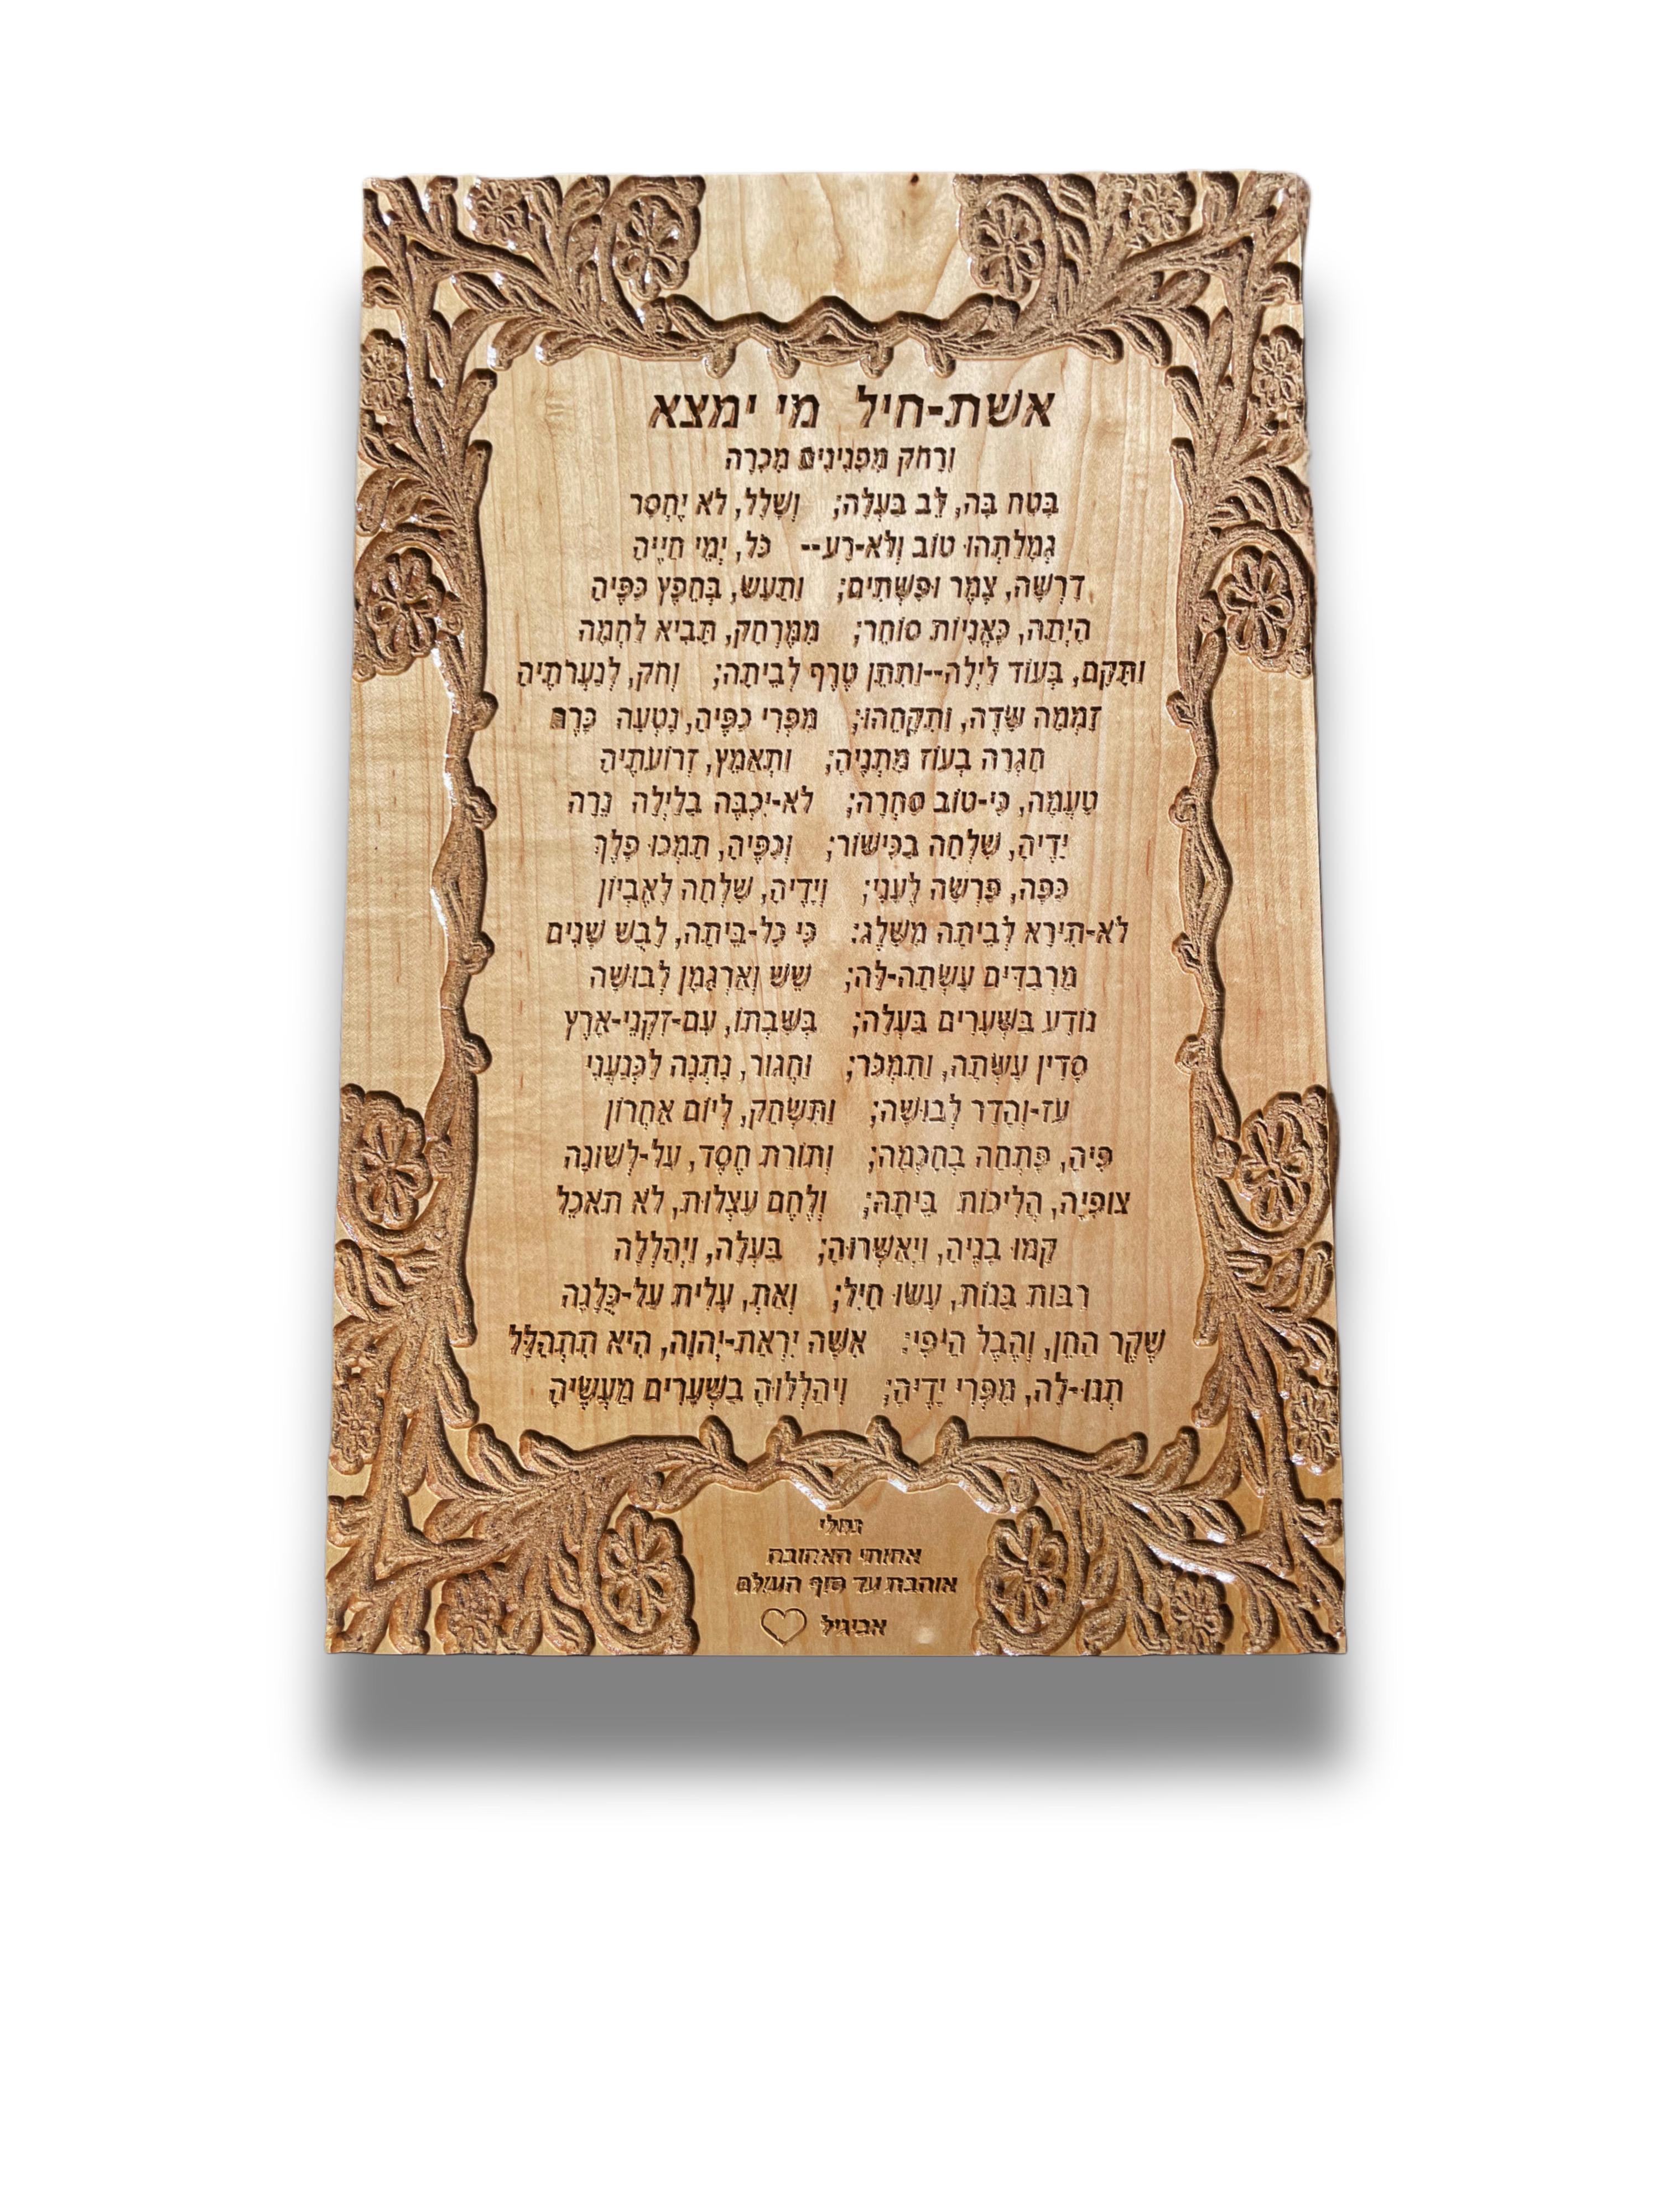 אשת-חיל מי ימצא
וְרָחֹק מִפְּנִינִים מִכְרָהּ
בָּטַח בָּהּ, לֵב בַּעְלָהּ; וְשָׁלָל, לֹא יֶחְסָר
גְּמָלַתְהוּ טוֹב וְלֹא-רָע-- כֹּל, יְמֵי חַיֶּיהָ
דָּרְשָׁה, צֶמֶר וּפִשְׁתִּים; וַתַּעַשׂ, בְּחֵפֶץ כַּפֶּיהָ
הָיְתָה, כָּאֳנִיּוֹת סוֹחֵר; מִמֶּרְחָק, תָּבִיא לַחְמָהּ
וַתָּקָם, בְּעוֹד לַיְלָה--וַתִּתֵּן טֶרֶף לְבֵיתָהּ; וְחֹק, לְנַעֲרֹתֶיהָ
זָמְמָה שָׂדֶה, וַתִּקָּחֵהוּ; מִפְּרִי כַפֶּיהָ, נָטְעָה כָּרֶם
חָגְרָה בְעוֹז מָתְנֶיהָ; וַתְּאַמֵּץ, זְרוֹעֹתֶיהָ
טָעֲמָה, כִּי-טוֹב סַחְרָהּ; לֹא-יִכְבֶּה בַלַּיְלָה נֵרָהּ
יָדֶיהָ, שִׁלְּחָה בַכִּישׁוֹר; וְכַפֶּיהָ, תָּמְכוּ פָלֶךְ
כַּפָּהּ, פָּרְשָׂה לֶעָנִי; וְיָדֶיהָ, שִׁלְּחָה לָאֶבְיוֹן
לֹא-תִירָא לְבֵיתָהּ מִשָּׁלֶג: כִּי כָל-בֵּיתָהּ, לָבֻשׁ שָׁנִים
מַרְבַדִּים עָשְׂתָה-לָּהּ; שֵׁשׁ וְאַרְגָּמָן לְבוּשָׁהּ
נוֹדָע בַּשְּׁעָרִים בַּעְלָהּ; בְּשִׁבְתּוֹ, עִם-זִקְנֵי-אָרֶץ
סָדִין עָשְׂתָה, וַתִּמְכֹּר; וַחֲגוֹר, נָתְנָה לַכְּנַעֲנִי
עֹז-וְהָדָר לְבוּשָׁהּ; וַתִּשְׂחַק, לְיוֹם אַחֲרוֹן
פִּיהָ, פָּתְחָה בְחָכְמָה; וְתוֹרַת חֶסֶד, עַל-לְשׁוֹנָהּ
צוֹפִיָּה, הֲלִיכוֹת בֵּיתָהּ; וְלֶחֶם עַצְלוּת, לֹא תֹאכֵל
קָמוּ בָנֶיהָ, וַיְאַשְּׁרוּהָ; בַּעְלָהּ, וַיְהַלְלָהּ
רַבּוֹת בָּנוֹת, עָשׂוּ חָיִל; וְאַתְּ, עָלִית עַל-כֻּלָּנָה
שֶׁקֶר הַחֵן, וְהֶבֶל הַיֹּפִי: אִשָּׁה יִרְאַת-יְהוָה, הִיא תִתְהַלָּל
תְּנוּ-לָהּ, מִפְּרִי יָדֶיהָ; וִיהַלְלוּהָ בַשְּׁעָרִים מַעֲשֶׂיהָ
אחותי האהובה
אוהבת עד סוף העולם
אביגיל